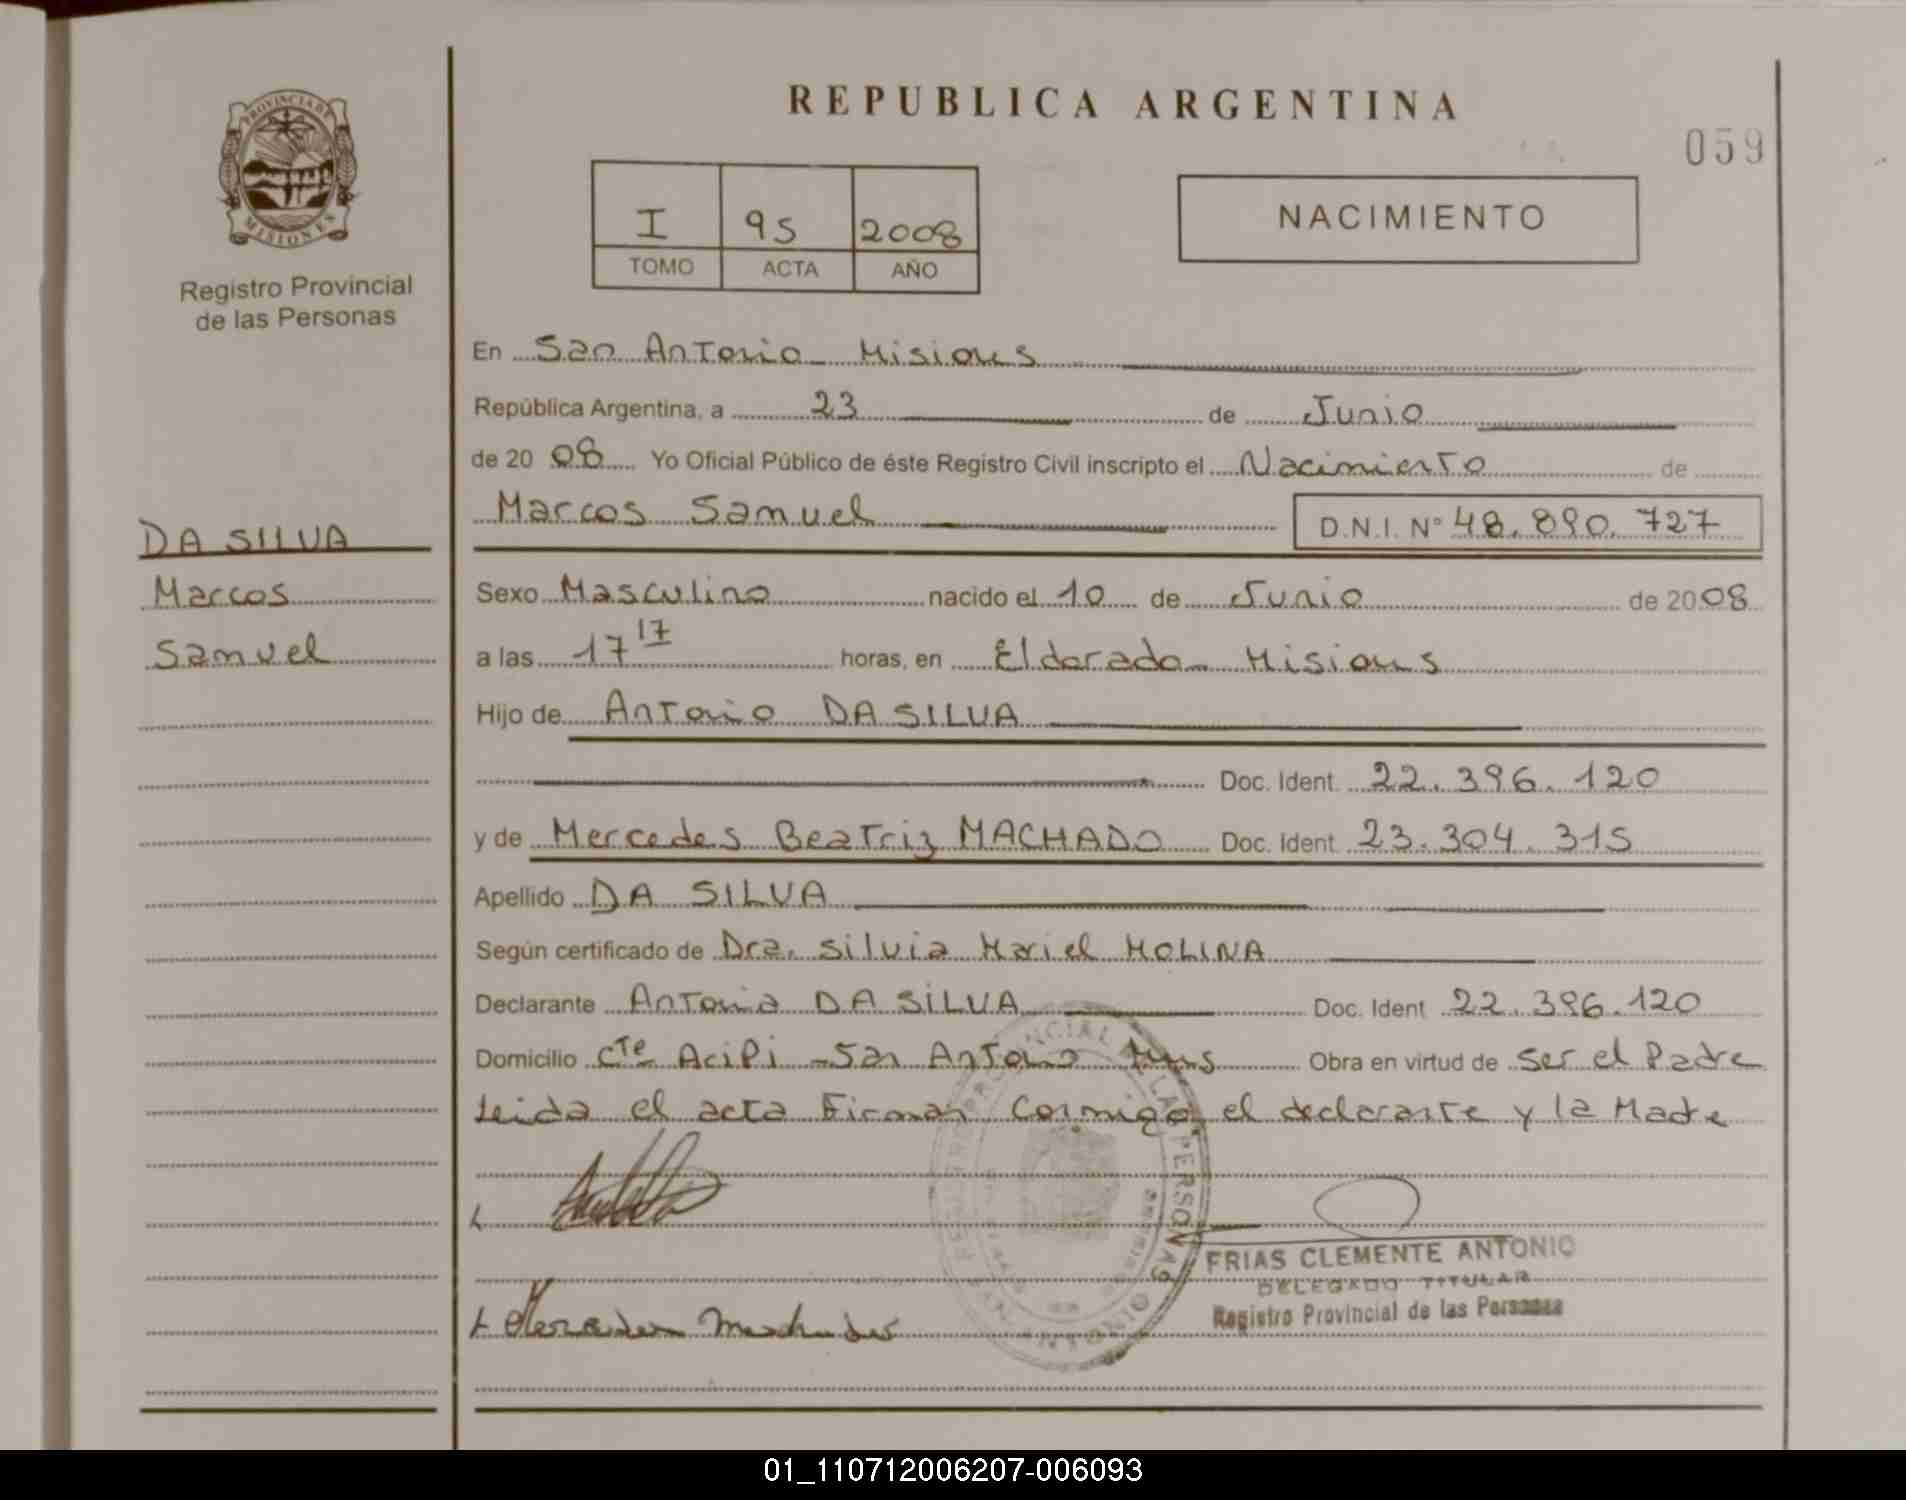 REPUBLICA ARGENTINA
059
PROVINCIA DE
MISIONES
Registro Provincial
de las Personas
I 95 2008
TOMO ACTA AÑO
NACIMIENTO
En San Antonio Misiones
República Argentina, a 23 de Junio
de 20 08 Yo Oficial Público de éste Registro Civil inscripto el Nacimiento de
Marcos Samuel D.N.I. N° 48.890.727
DA SILVA
Marcos
Samuel
Sexo Masculino nacido el 10 de Junio de 2008
a las 17 17 horas, en Eldorado Misiones
Hijo de Antonio DA SILVA
Doc. Ident. 22.396.120
y de Mercedes Beatriz MACHADO Doc. Ident. 23.304.315
Apellido DA SILVA
Según certificado de Dra. Silvia Mariel MOLINA
Declarante Antonio DA SILVA Doc. Ident 22.396.120
Domicilio Cte Acipi - San Antonio Mns Obra en virtud de ser el Padre
Leida el acta Firman Conmigo el declarante y la Madre
FRIAS CLEMENTE ANTONIO
DELEGADO TITULAR
Registro Provincial de las Personas
01_110712006207-006093